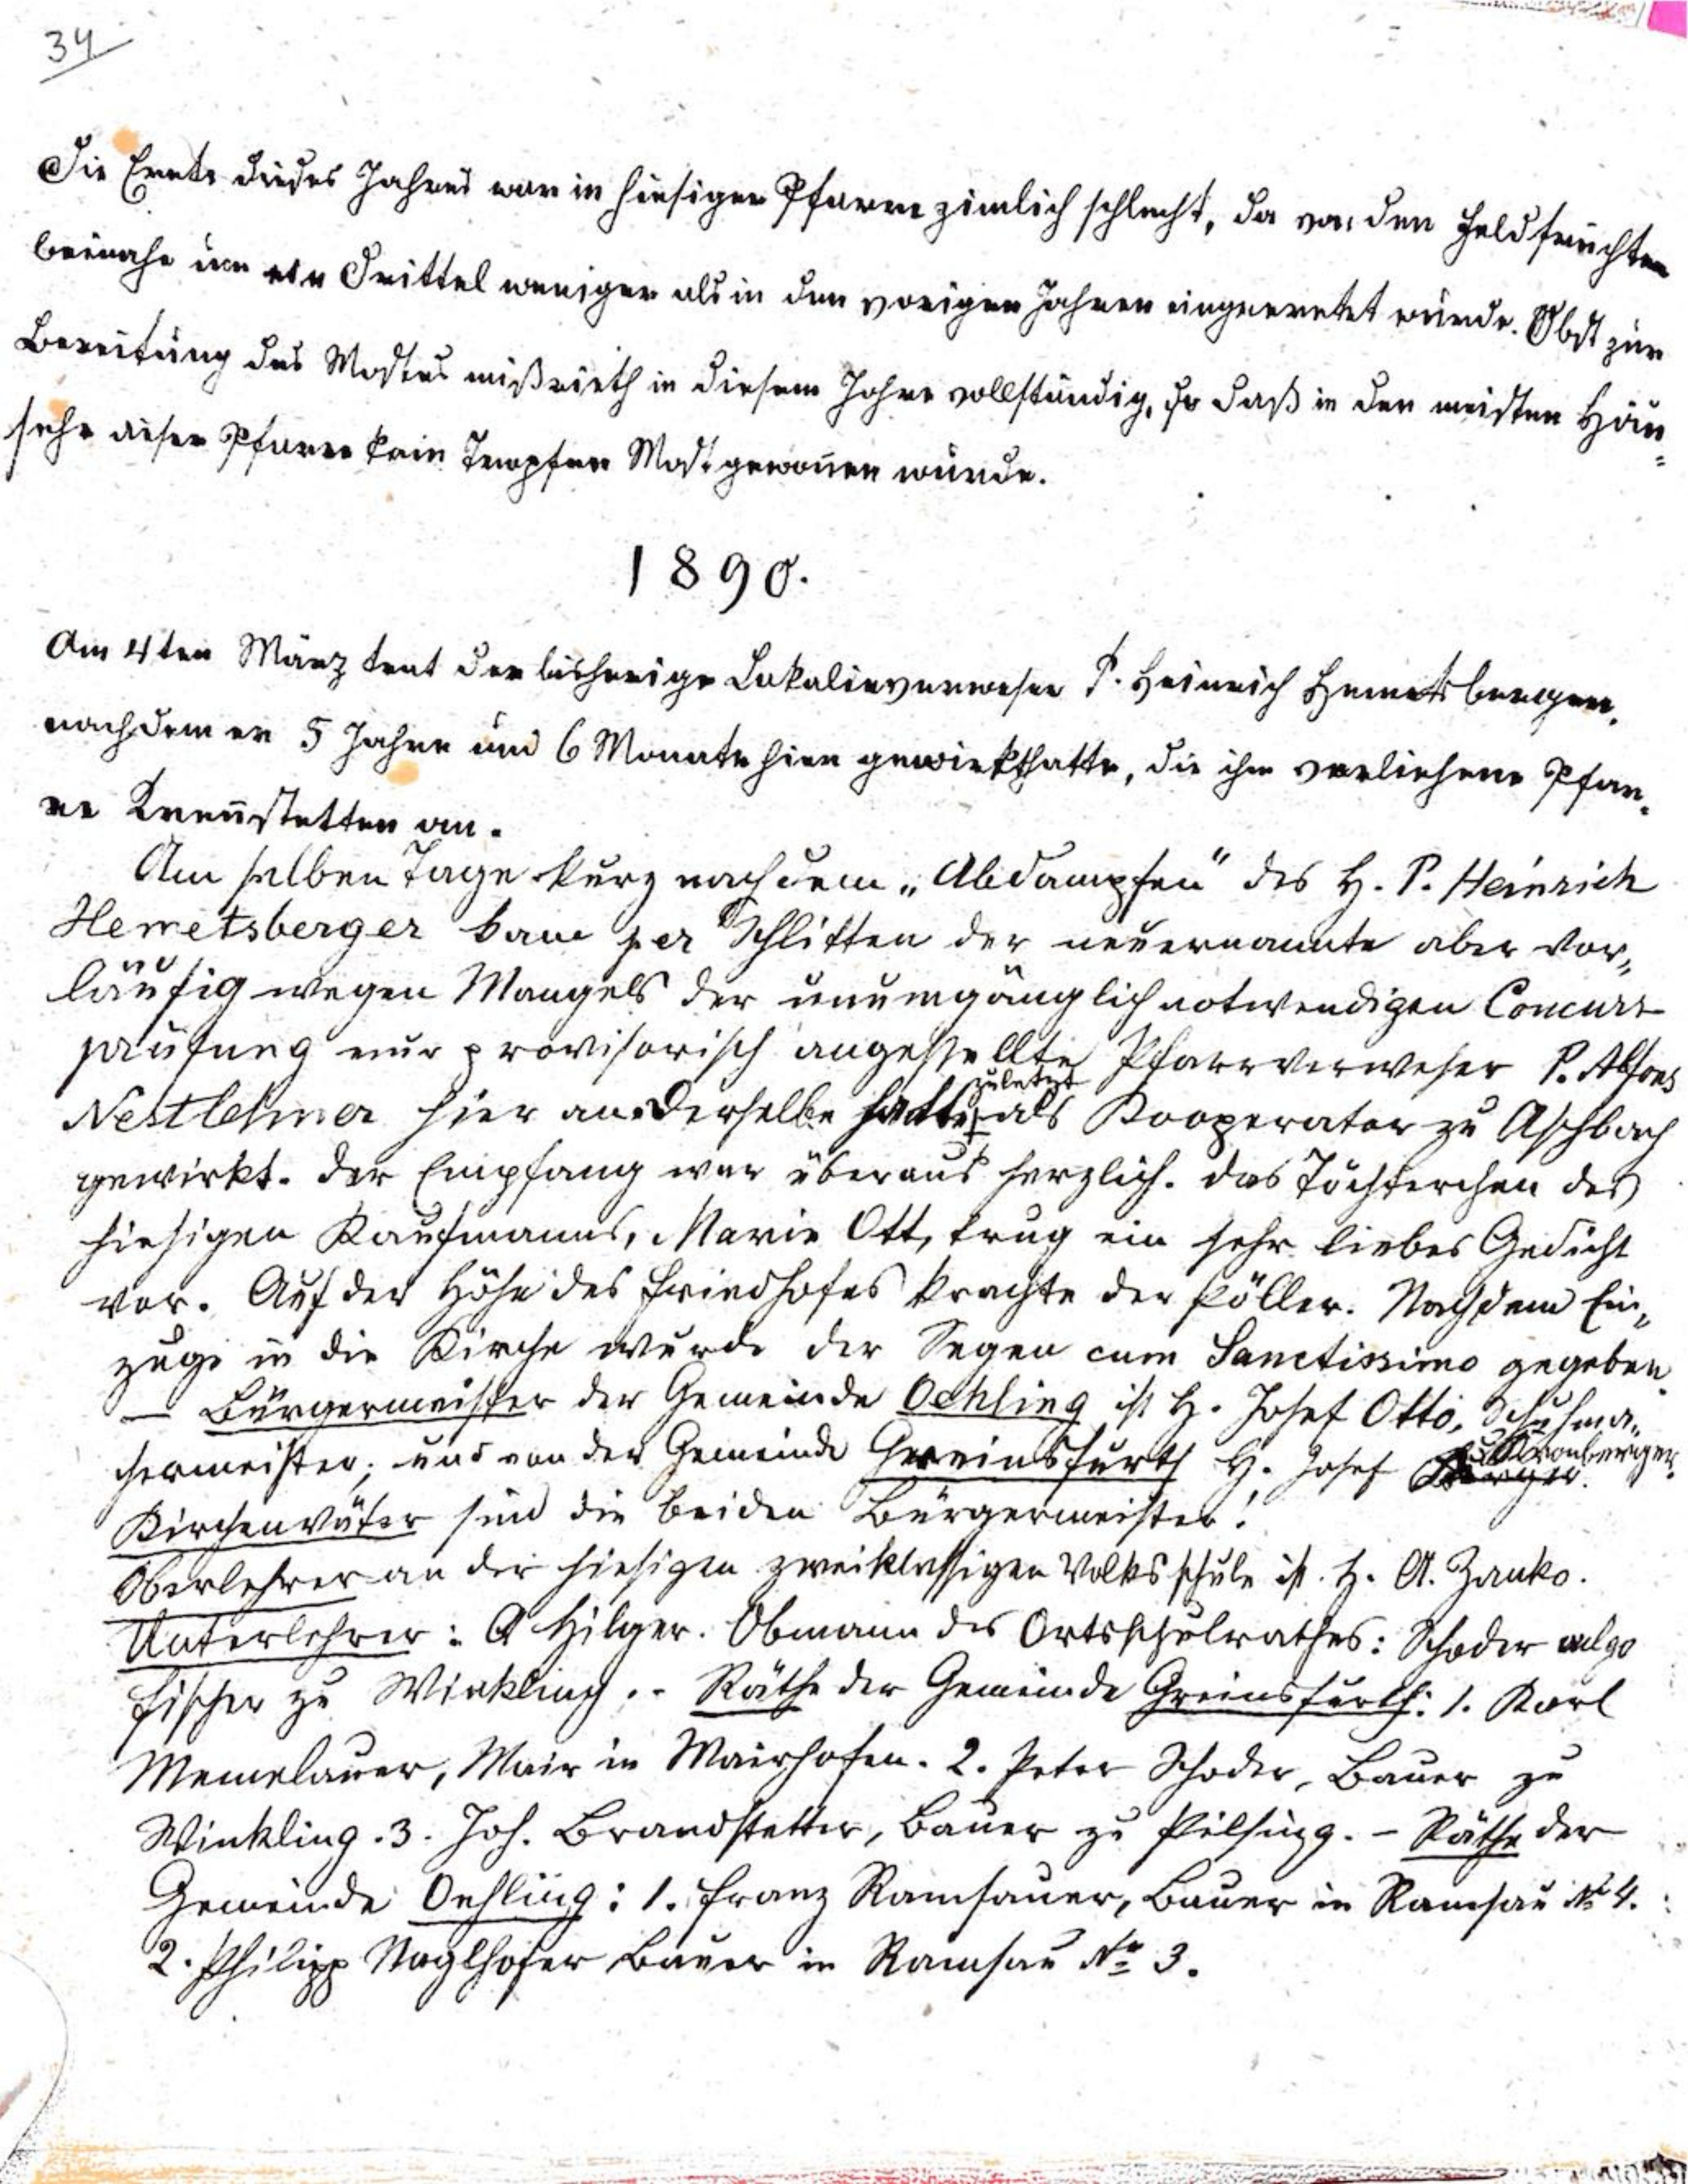 34
Die Ernte dieses Jahres war in hiesiger Pfarre zimlich schlecht, da von den Feldfrüchten
beinahe um ein Drittel weniger als in den vorigen Jahren eingeerntet wurde. Obst zur
Bereitung des Mostes mißrieth in diesem Jahre vollständig, so daß in den meisten Häu-
sern dieser Pfarre kein Tropfen Most gewonnen wurde.
1890.
Am 4ten März trat der bisherige Lokalieverweser P. Heinrich Hemetsberger,
nachdem er 5 Jahre und 6 Monate hier gewirkt hatte, die ihm verliehene Pfar-
re Krennstetten an.
Am selben Tage kurz nach dem „Abdampfen" des H. P. Heinrich
Hemetsberger kam per Schlitten der neuernannte aber vor-
läufig wegen Mangels der unumgänglich notwendigen Concurs-
prüfung nur provisorisch angestellte Pfarrverweser P. Alfons
Nestlehner hier an. Derselbe hatte zuletzt als Kooperator zu Aschbach
gewirkt. Der Empfang war überaus herzlich. Das Töchterchen des
hiesigen Kaufmanns, Marie Ott, trug ein sehr liebes Gedicht
vor. Auf der Höhe des Friedhofes krachte der Pöller. Nach dem Ein-
zuge in die Kirche wurde der Segen cum Sanctissimo gegeben.
— Bürgermeister der Gemeinde Oehling ist H. Josef Otto, Schuhma-
chermeister; und von der Gemeinde Greinsfurth H. Josef Kronberger.
Kirchenväter sind die beiden Bürgermeister!
Oberlehrer an der hiesigen zweiklassigen Volksschule ist H. A. Zanko.
Unterlehrer: A Hilger. Obmann des Ortsschulrathes: Schoder vulgo
Fischer zu Winkling. - Räthe der Gemeinde Greinsfurth: 1. Karl
Memelauer, Mair in Mairhofen. 2. Peter Schoder, Bauer zu
Winkling. 3. Joh. Brandstetter, Bauer zu Pilsing. - Räthe der
Gemeinde Oehling: 1. Franz Ramsauer, Bauer in Ramsau № 4.
2. Philipp Naglhofer Bauer in Ramsau № 3.